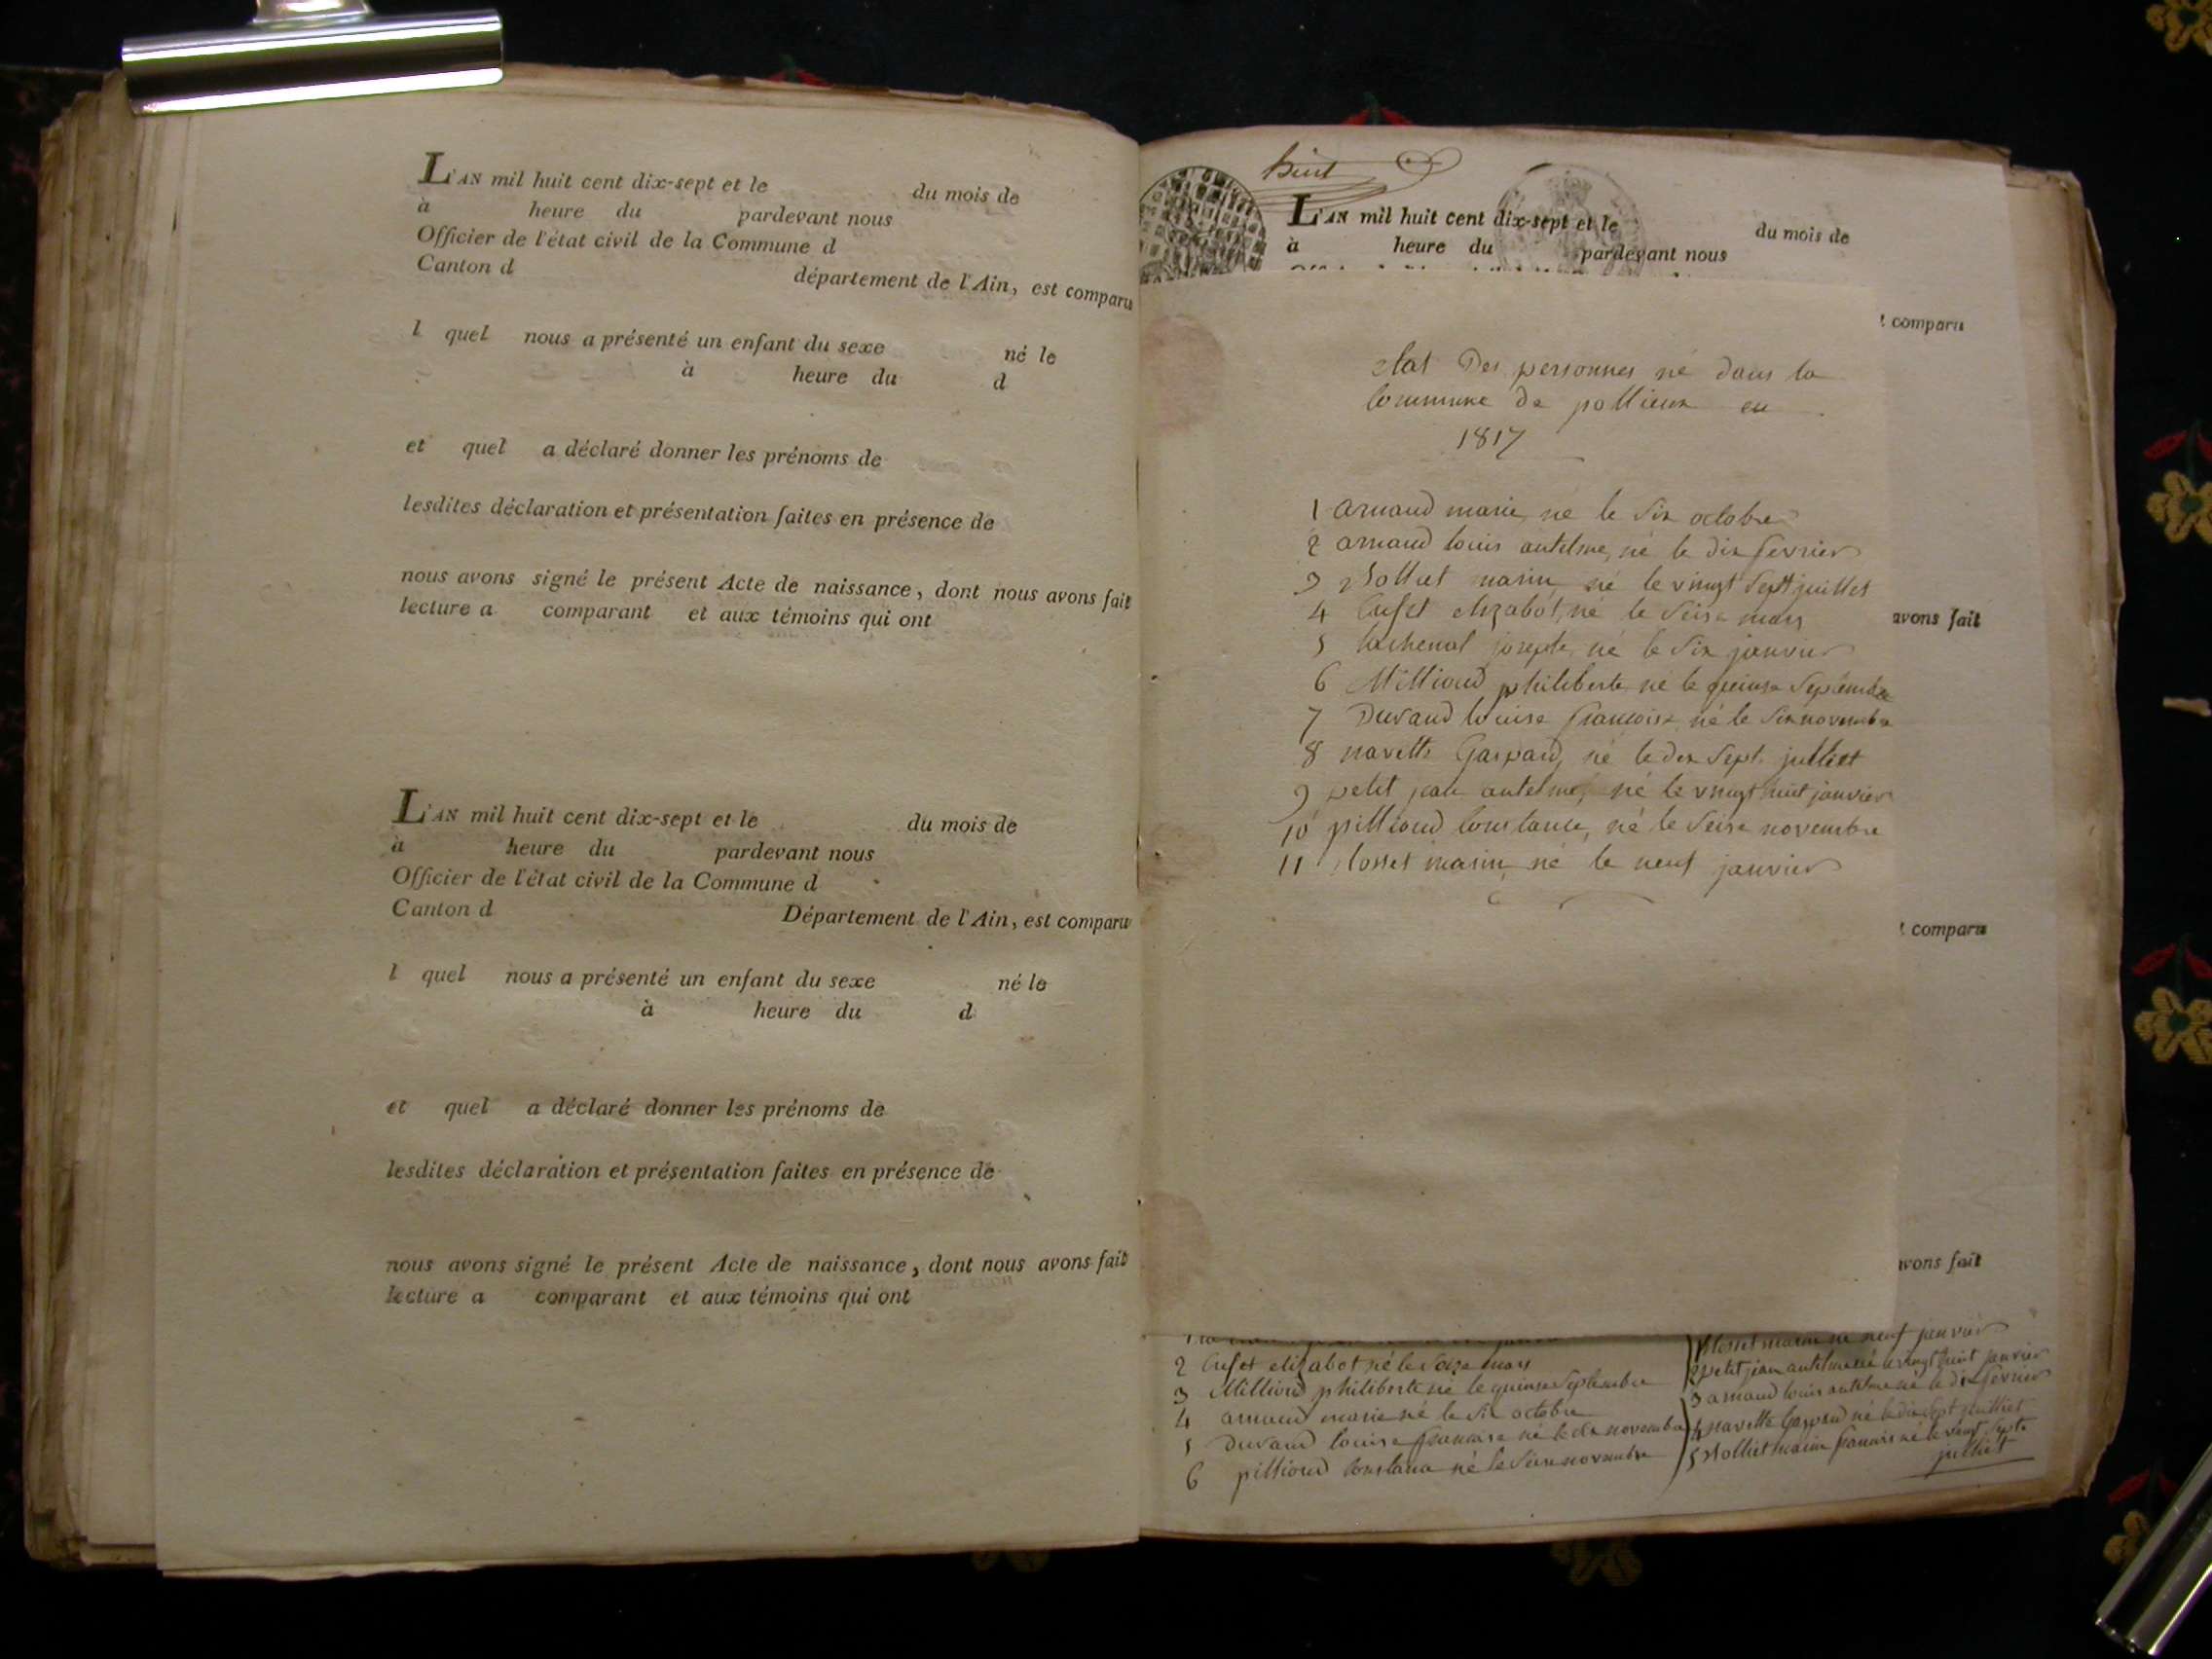 L'AN mil huit cent dix-sept et le du mois de
à heure du pardevant nous
Officier de l'état civil de la Commune d
Canton d département de l'Ain, est comparu
l quel nous a présenté un enfant du sexe né le
à heure du d
et quel a déclaré donner les prénoms de
lesdites déclaration et présentation faites en présence de
nous avons signé le présent Acte de naissance, dont nous avons fait
lecture a comparant et aux témoins qui ont
L'AN mil huit cent dix-sept et le du mois de
à heure du pardevant nous
Officier de l'état civil de la Commune d
Canton d Département de l'Ain, est comparu
l quel nous a présenté un enfant du sexe né le
à heure du d
et quel a déclaré donner les prénoms de
lesdites déclaration et présentation faites en présence de
nous avons signé le présent Acte de naissance, dont nous avons fait
lecture a comparant et aux témoins qui ont
huit
L'AN mil huit cent dix-sept et le du mois de
à heure du pardevant nous
comparu
etat Des personnes né dans la
Commune de pollieux en
1817
1 arnaud marie né le six octobre
2 arnaud louis antelme, né le dix fevrier
3 marin né le vingt Sept juillet
4 Cuset elizabot, né le Seise mars
5 né le six janvier
6 Millioud philiberte né le quinse Septembre
7 Durand louise francoise né le six novembre
8 navette Gaspard, né le dix Sept julliet
9 petit jean antelme, né le vingt huit janvier
10 pillioud Constance, né le Seise novembre
11 marin né le neuf janvier
avons fait
comparu
avons fait
2 Cuset elizabot né le Seize mars
3 Millioud philiberte né le quinse Septembre
4 arnaud marie né le six octobre
5 Durand louise francoise né le six novembre
6 pillioud Constance né le Seise novembre
marin né neuf janvier
2 petit jean antelme né le vingt huit janvier
3 arnaud louis antelme né le dix fevrier
4 navette Gaspard né le dix Sept julliet
5 marin francois né le vingt Sept
julliet